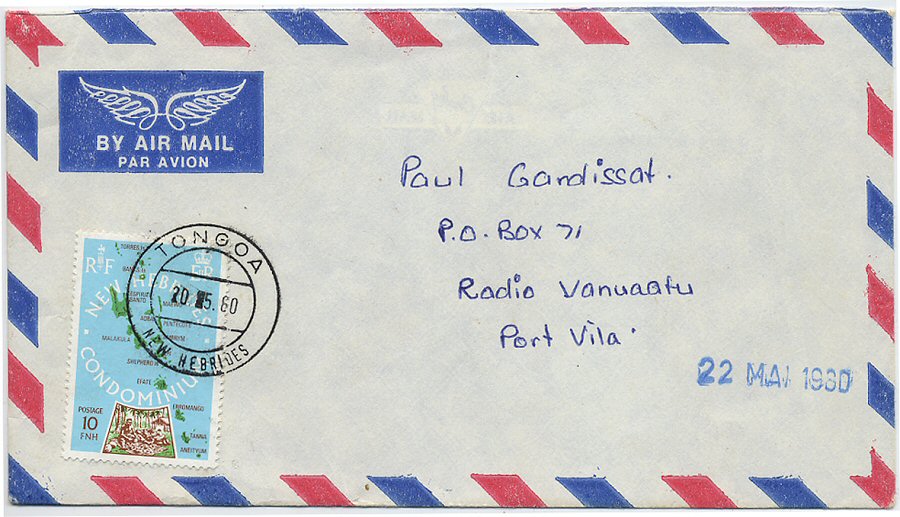 BY AIR MAIL
PAR AVION
Paul Gardissat.
P.O. Box 71
Radio Vanuaatu
Port Vila
22 MAI 1980
TONGOA
20. 5.80
NEW HEBRIDES
TORRES IS
RF
ER
BANKS IS
NEW HEBRIDES
ESPIRITU
SANTO
AOBA
PENTECOTE
MALAKULA
SHEPHERD IS
EFATE
CONDOMINIUM
ERROMANGO
TANNA
ANEITYUM
POSTAGE
10
FNH